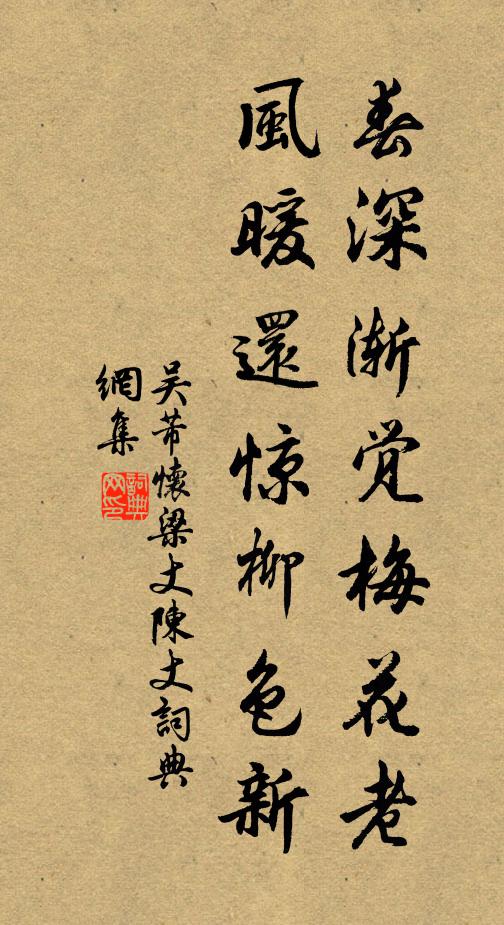 春深渐觉梅花老
風暖還惊柳色新
吴芾懷梁丈陳丈詞典
網集
詞典
网印